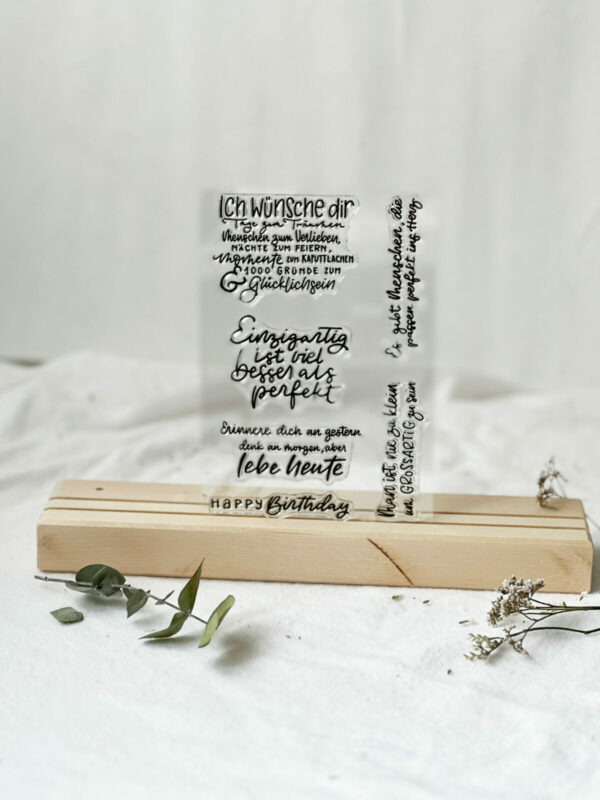 Ich wünsche dir
Tage zum Träumen
Menschen zum Verlieben,
NÄCHTE ZUM FEIERN,
Momente zum KAPUTTLACHEN
& 1000 GRÜNDE ZUM
Glücklichsein
Einzigartig
ist viel
besser als
perfekt
Erinnere dich an gestern
denk an morgen, aber
lebe heute
HAPPY Birthday
Es gibt Menschen, die
passen perfekt ins Herz
Man ist nie zu klein
um GROSSARTIG zu sein